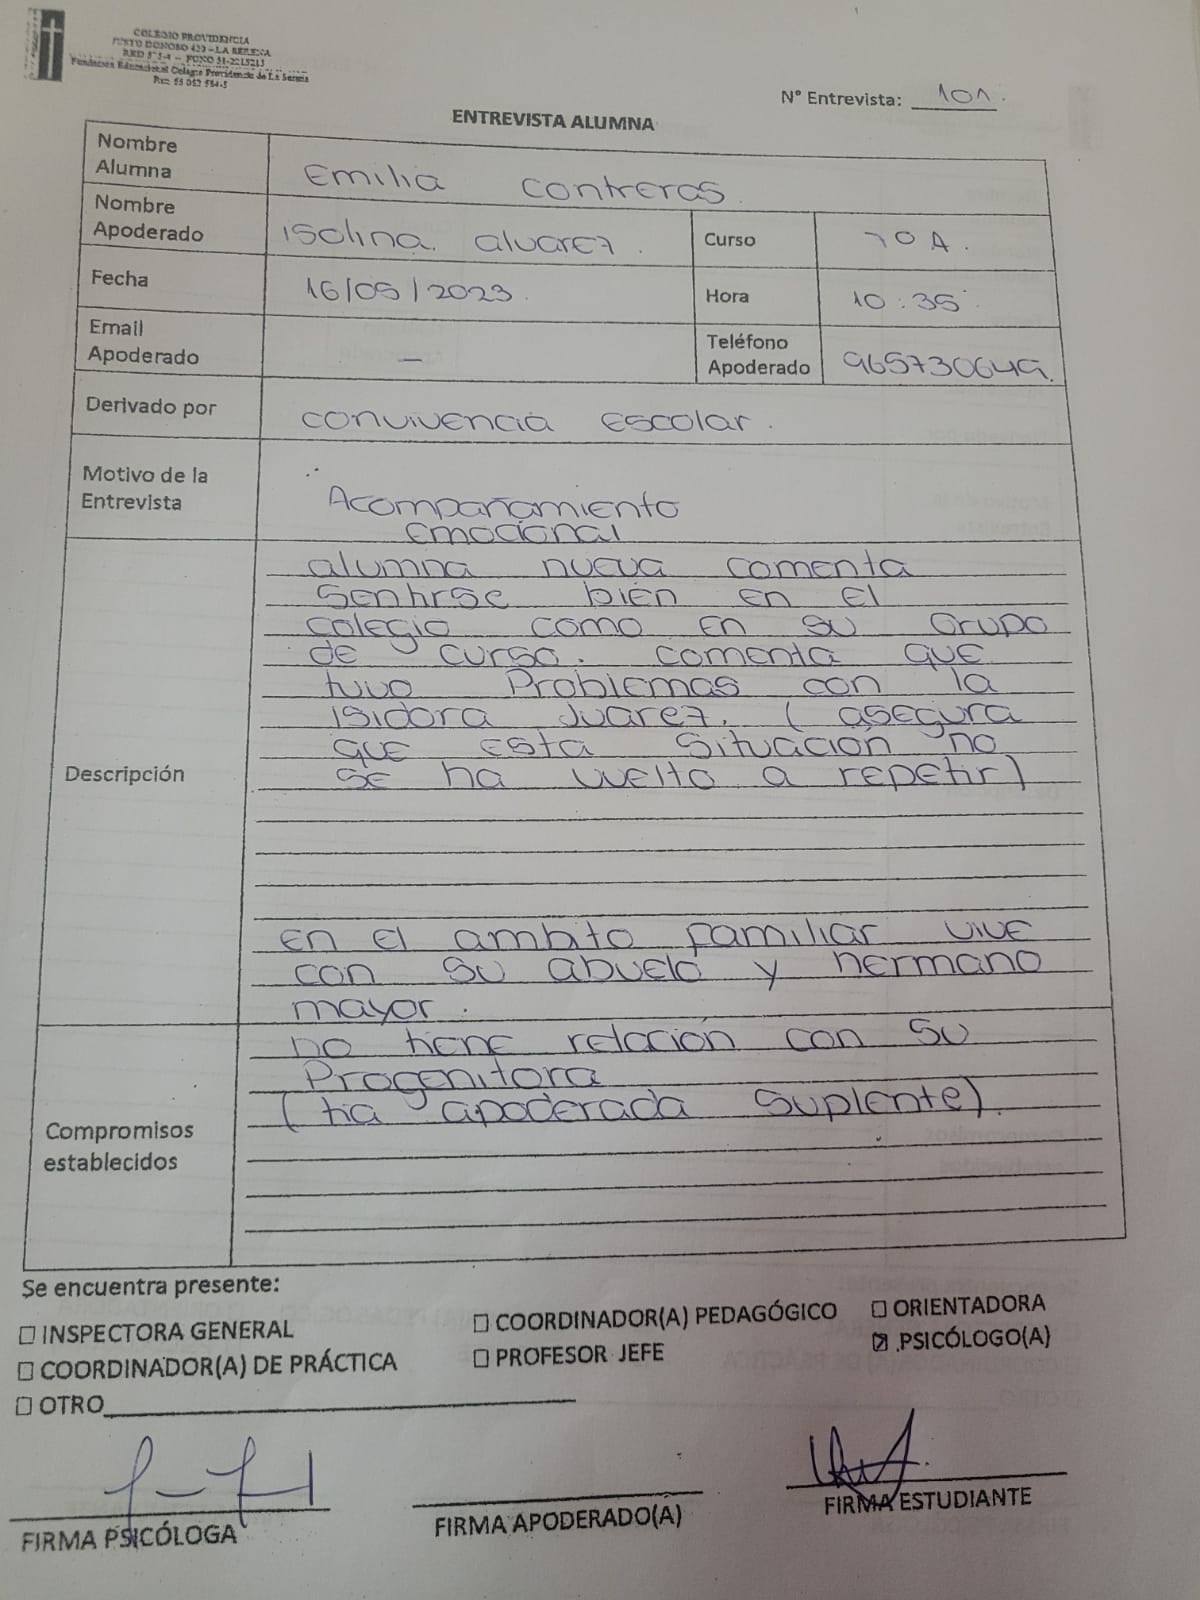 COLEGIO PROVIDENCIA
JUSTO DONOSO 420 - LA SERENA
Fundación Educacional Colegio Providencia de La Serena
N° Entrevista: 101.
ENTREVISTA ALUMNA
Nombre Alumna Emilia Contreras.
Nombre Apoderado Isolina. alvarez. Curso 7° A.
Fecha 16/05/2023. Hora 10:35
Email Apoderado — Teléfono Apoderado 965730649.
Derivado por convivencia Escolar.
Motivo de la Entrevista
Acompañamiento
Emocional
Descripción
alumna nueva comenta
Sentirse bien en el
colegio como en su Grupo
de curso. comenta que
tuvo Problemas con la
isidora Juarez. (asegura
que esta situación no
se ha vuelto a repetir)
en el ambito familiar vive
con su abuela y hermano
mayor.
Compromisos establecidos
no tiene relación con su
Progenitora
(tia apoderada suplente).
Se encuentra presente:
☐ INSPECTORA GENERAL ☐ COORDINADOR(A) PEDAGÓGICO ☐ ORIENTADORA
☐ COORDINADOR(A) DE PRÁCTICA ☐ PROFESOR JEFE ☒ .PSICÓLOGO(A)
☐ OTRO
FIRMA PSICÓLOGA FIRMA APODERADO(A) FIRMA ESTUDIANTE